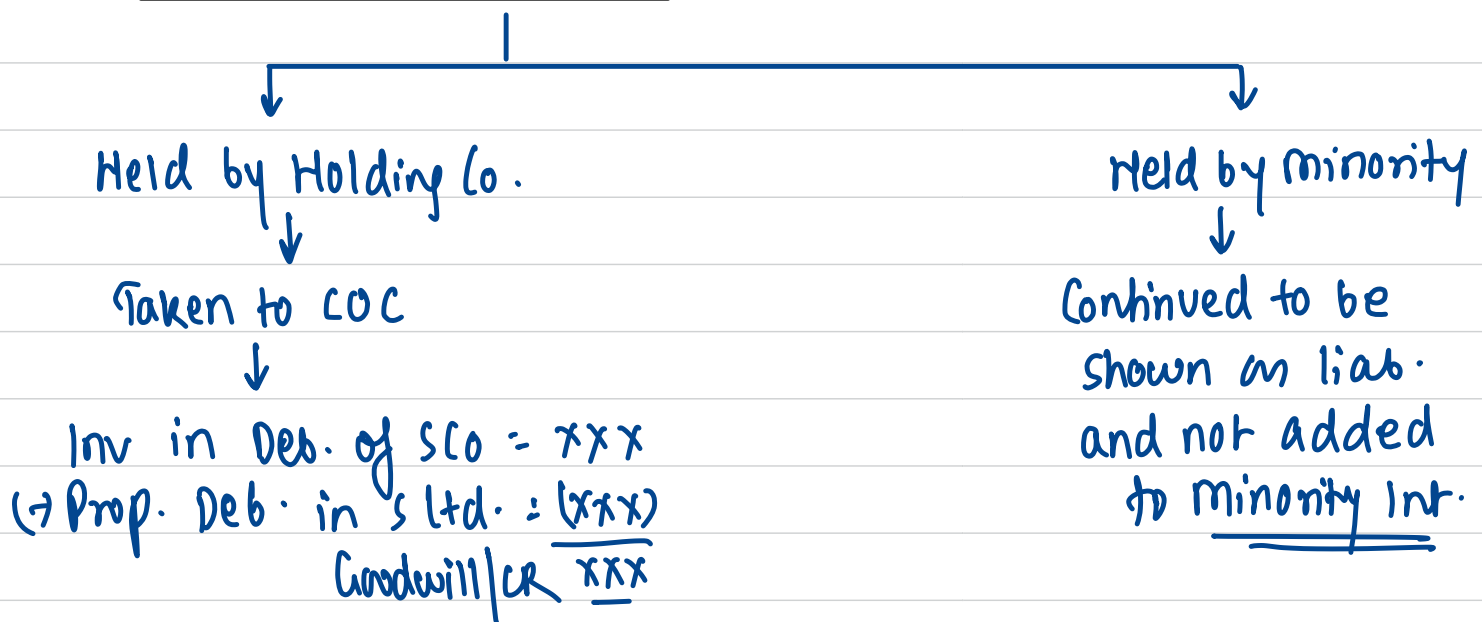 Held by Holding Co.
Taken to COC
Inv in Deb. of SCo = xxx
(-) Prop. Deb. in S Ltd. = (xxx)
Goodwill/CR xxx
Held by minority
Continued to be
shown as liab.
and not added
to Minority Int.